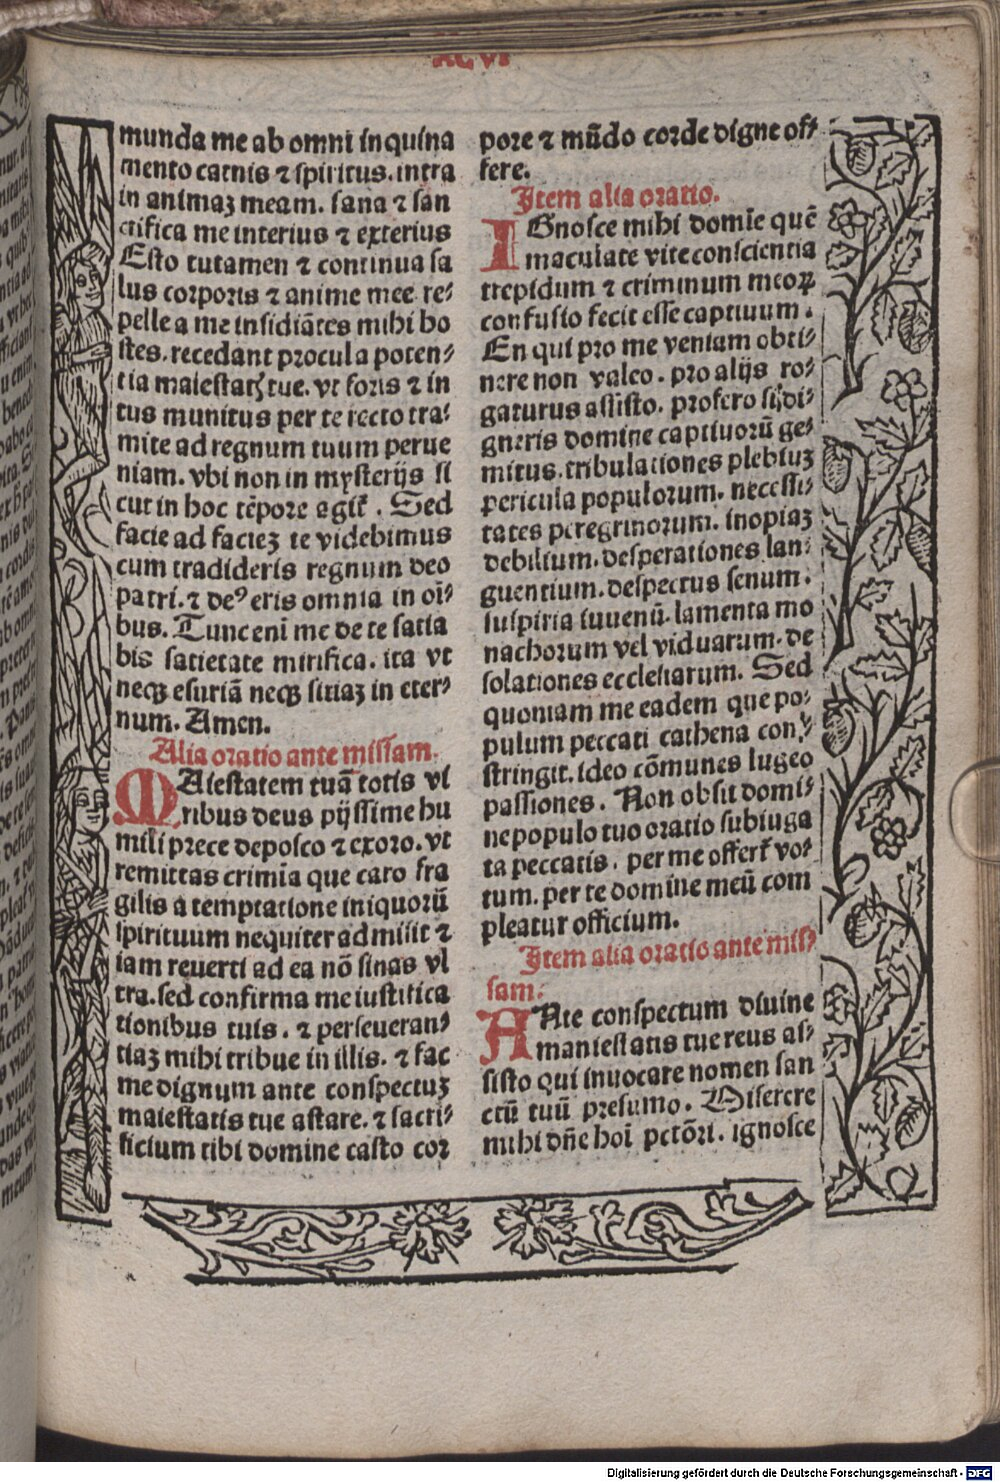 XCVI
munda me ab omni inquina
mento carnis ⁊ spiritus. intra
in animaꝫ meam. sana ⁊ san
ctifica me interius ⁊ exterius
Esto tutamen ⁊ continua sa
lus corporis ⁊ anime mee. re⸗
pelle a me insidiātes mihi ho
stes. recedant procul a poten⸗
tia maiestatꝭ tue. vt foris ⁊ in
tus munitus per te recto tra⸗
mite ad regnum tuum perue
niam. vbi non in mysterijs si
cut in hoc tēpore agit᷑. Sed
facie ad facieꝫ te videbimus
cum tradideris regnum deo
patri. ⁊ deꝰ eris omnia in oī⸗
bus. Tunc enī me de te satia
bis satietate mirifica. ita vt
neqꝫ esuriā neqꝫ sitiaꝫ in eter⸗
num. Amen.
Alia oratio ante missam.
MAiestatem tuā totis vi
ribus deus pijssime hu
mili prece deposco ⁊ exoro. vt
remittas crimīa que caro fra
gilis a temptatione iniquorū
spirituum nequiter admisit ⁊
iam reuerti ad ea nō sinas vl
tra. sed confirma me iustifica
tionibus tuis. ⁊ perseueran⸗
tiaꝫ mihi tribue in illis. ⁊ fac
me dignum ante conspectuꝫ
maiestatis tue astare. ⁊ sacri⸗
ficium tibi domine casto cor
pore ⁊ mūdo corde digne of⸗
fere.
Item alia oratio.
IGnosce mihi domīe quē
maculate vite conscientia
trepidum ⁊ criminum meoꝝ
confusio fecit esse captiuum.
En qui pro me veniam obti⸗
nere non valeo. pro alijs ro⸗
gaturus assisto. profero si di⸗
gneris domine captiuorū ge⸗
mitus. tribulationes plebiuꝫ
pericula populorum. necessi⸗
tates peregrinorum. inopiaꝫ
debilium. desperationes lan⸗
guentium. despectus senum.
suspiria iuuenū. lamenta mo
nachorum vel viduarum. de
solationes ecclesiarum. Sed
quoniam me eadem que po⸗
pulum peccati cathena con⸗
stringit. ideo cōmunes lugeo
passiones. Non obsit domi⸗
ne populo tuo oratio subiuga
ta peccatis. per me offert᷑ vo⸗
tum. per te domine meū com
pleatur officium.
Item alia oratio ante mis⸗
sam.
ANte conspectum diuine
maniestatis tue reus as⸗
sisto qui inuocare nomen san
ctū tuū presumo. Miserere
mihi dn̄e hoī pctōri. ignosce
Digitalisierung gefördert durch die Deutsche Forschungsgemeinschaft - DFG